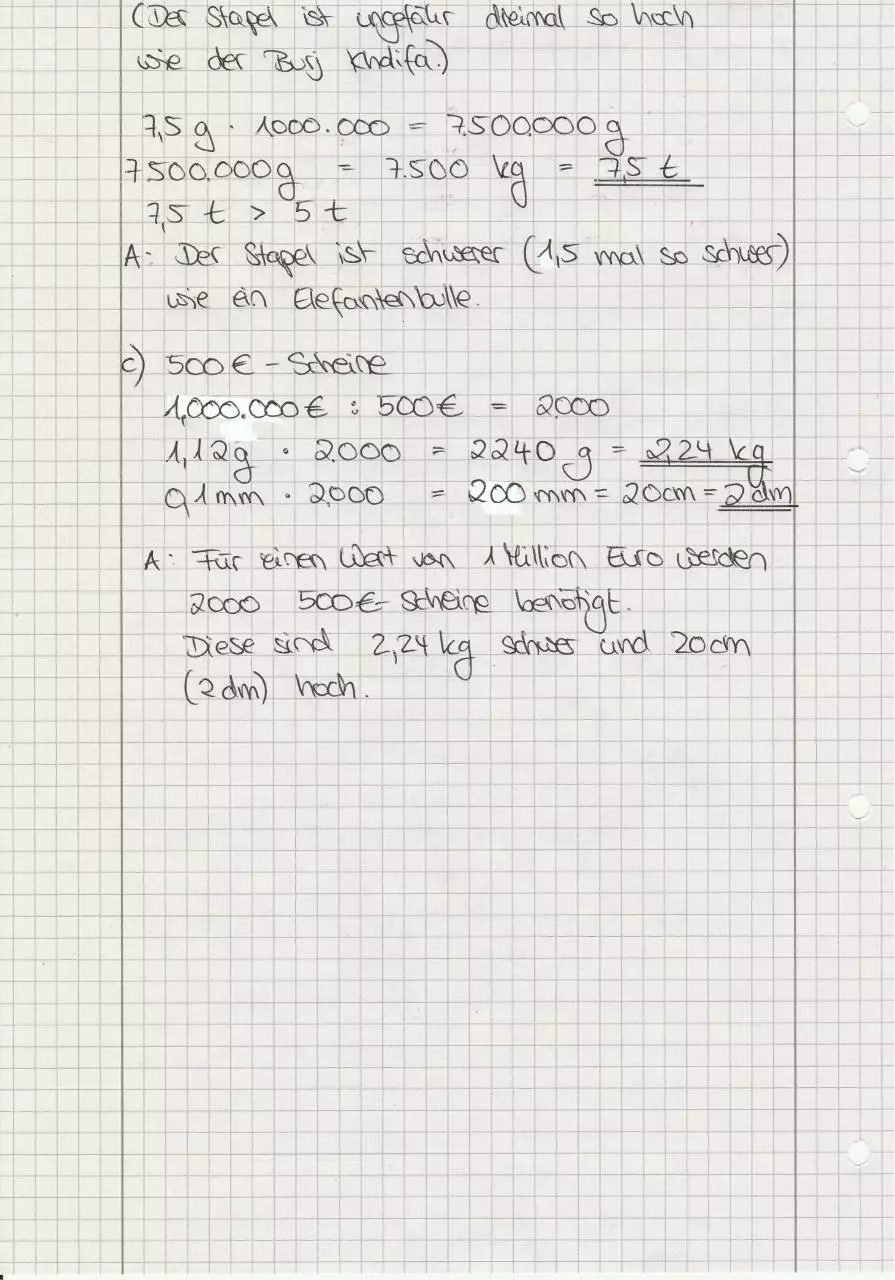 (Der Stapel ist ungefähr dreimal so hoch
wie der Burj Khalifa.)
7,5 g · 1000.000 = 7.500.000 g
7500.000g = 7.500 kg = 7,5 t
7,5 t > 5 t
A: Der Stapel ist schwerer (1,5 mal so schwer)
wie ein Elefantenbulle.
c) 500 € - Scheine
1.000.000 € : 500 € = 2000
1,12g · 2.000 = 2240 g = 2,24 kg
0,1 mm · 2.000 = 200 mm = 20cm = 2 dm
A: Für einen Wert von 1 Million Euro werden
2000 500€- Scheine benötigt.
Diese sind 2,24 kg schwer und 20 cm
(2 dm) hoch.